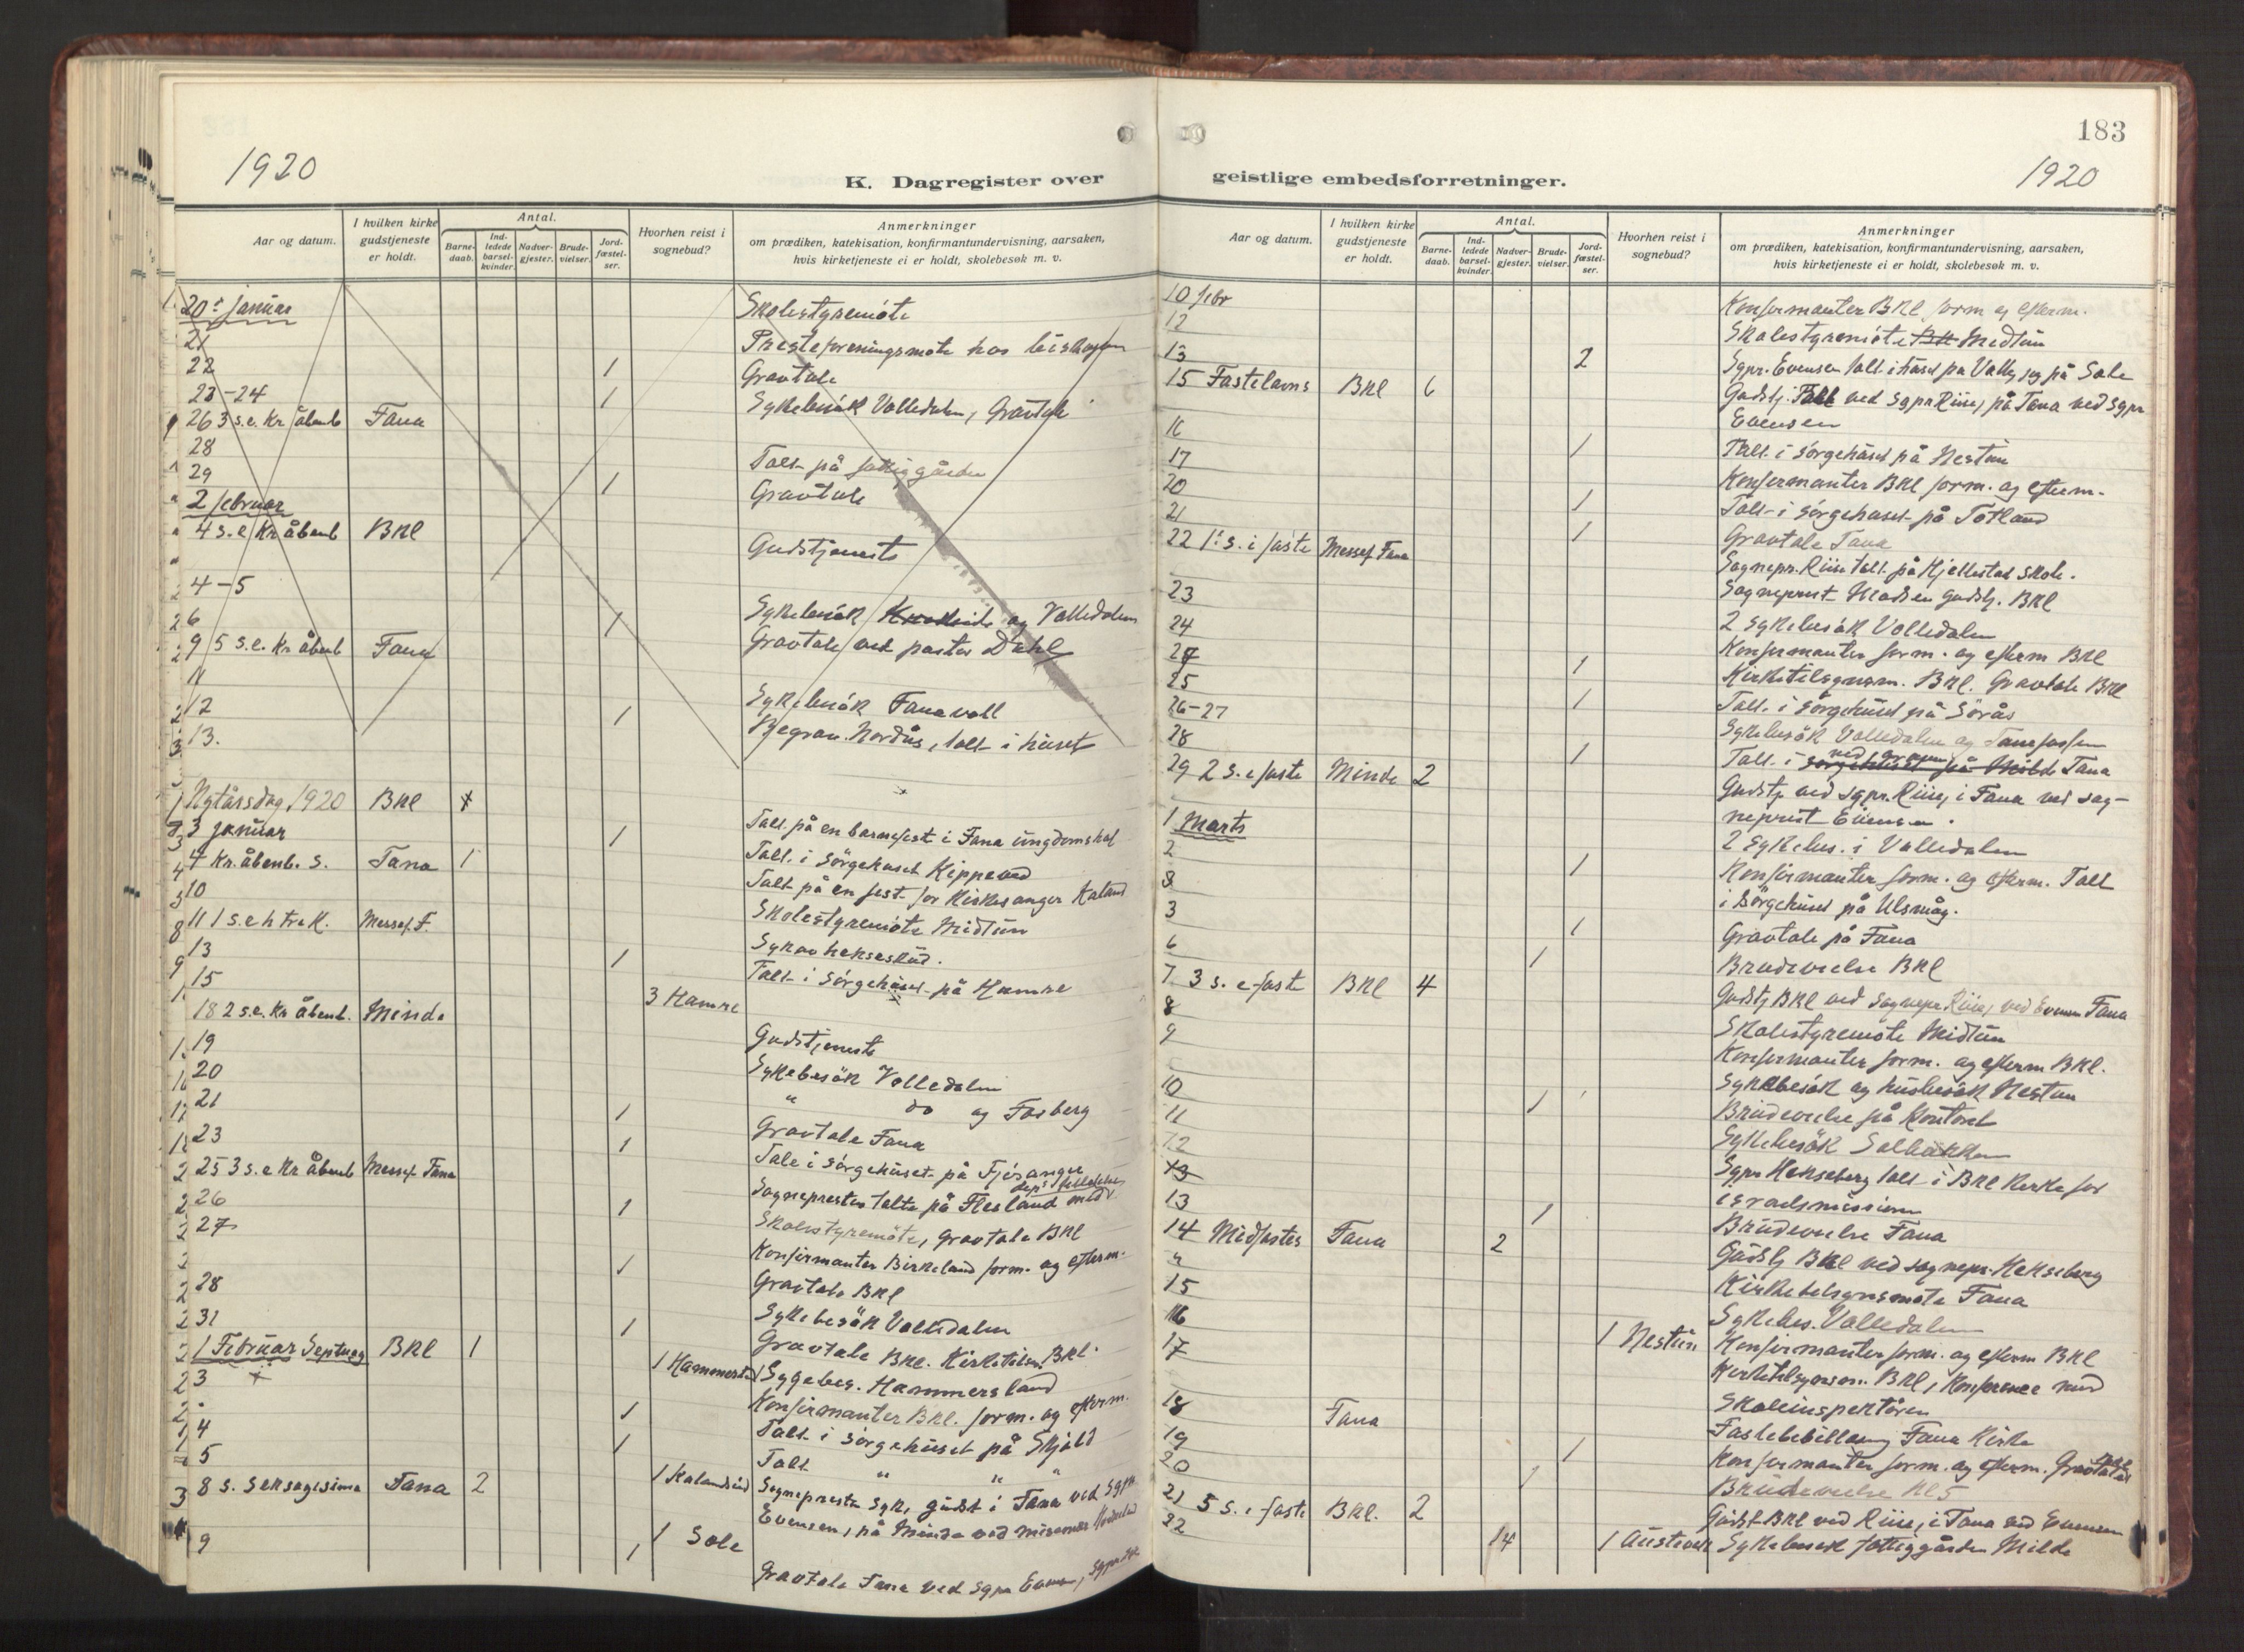 183
1920
1920
K. Dagregister over geistlige embedsforretninger.
Aar og datum.
I hvilken kirke gudstjeneste er holdt.
Antal.
Barnedaab.
Indledede barselkvinder.
Nadvergjester.
Brudevielser.
Jordfæstelser.
Hvorhen reist i sognebud?
Anmerkninger
om prædiken, katekisation, konfirmantundervisning, aarsaken,
hvis kirketjeneste ei er holdt, skolebesøk m. v.
20 januar Skolestyremöte
21 Presteforeningsmöte hos biskopen
22 1 Gravtale
23-24 1 Sykebesök Volledalen, Gravtale
26 3 s. e. Kr åbenb Fana
28 Talt på fattiggården
29 1 Gravtale
2 februar
4 s. e Kr åbenb BKl Gudstjeneste
4-5 Sykebesök og Volledalen
6 1 Gravtale ved pastor Dahl
9 5 s. e. Kr åbenb Fana
11 Sykebesök Fanavoll
12 1 Begrav. Nordås, talt i huset
13.
Nytårsdag 1920 BKl
3 januar 1 Talt på en barnefest i Fana ungdomshal
4 Kr. åbenb. s. Fana 1 Talt i sörgehuset Kippeved
10 Talt på en fest for Kirkesanger Kaland
11 1 s. e h tre K. Messef. F. Skolestyremöte Midtun
13 1 Syk av heksesküd.
15 Talt i sörgehuset på Hamre
18 2 s. e. Kr åbenb. Minde 3 Hamre
19 Gudstjeneste
20 Sykebesök Volledalen
21 1 " do og Fosberg
23 1 Gravtale Fana
25 3 s. e Kr Åbenb Messef Fana Tale i sörgehuset på Fjösanger
26 1 Sognepresten talte på Flesland
27 Skolestyremöte, gravtale BKl
1 Konfirmanter Birkeland form. og efterm.
28 Gravtale BKl
31 1 Sykebesök Volledalen
1 Februar Septuag BKl 1 Gravtale BKl. Kirketilsyn BKl.
3 1 Sygebes. Hammersland
1 Konfirmanter BKl. form. og efterm.
4 1 Talt i sörgehuset på Skjold
5 Talt " " "
8 s. Seksagesima Fana 2 1 Kalandseid Sognepresten syk, gudst i Fana ved Sgpr
Evensen, på Minde ved
9 1 1 Sole Gravtale Fana ved sgpr Evensen,
Aar og datum.
I hvilken kirke gudstjeneste er holdt.
Antal.
Barnedaab.
Indledede barselkvinder.
Nadvergjester.
Brudevielser.
Jordfæstelser.
Hvorhen reist i sognebud?
Anmerkninger
om prædiken, katekisation, konfirmantundervisning, aarsaken,
hvis kirketjeneste ei er holdt, skolebesøk m. v.
10 febr Konfirmanter BKl form og efterm.
12 Skolestyremöte Midtun
13 2 Sgpr. Evensen talt i huset på Valle, jeg på Sole
15 Fastelavns BKl 6 Gudstj. ved sgpr Riise, på Fana ved sgpr
Evensen
16 1 Talt i sörgehuset på Nestun
17 Konfirmanter BKl form. og efterm.
20 1 Talt i sörgehuset på Totland
21 1 Gravtale Fana
22 1. s. i faste Messef Fana Sognepr. Riise talt på Hjellestad skole.
Sogneprest Madsen gudstj. BKl
23 2 sykebesök Volledalen
24 Konfirmanter form. og efterm BKl
1 Kirketilsynsm. BKl. Gravtale BKl
25 1 Talt i sörgehuset på Sörås
26-27 Sykebesök Volledalen og Fanafossen
28 1 Talt ved graven Fana
29 2 s. e faste Minde 2 Gudstj ved sgpr. Riise, i Fana ved sogneprest Evensen.
1 Marts 2 sykebes. i Volledalen
2 1 Konfirmanter form. og efterm. Talt
i Sörgehuset på Ulsmåg.
3 1 Gravtale på Fana
6 1 Brudevielse BKl
7 3 s. e faste BKl 4 Gudstj BKl ved sognepr Riise, ved Evensen Fana
8 Skolestyremöte Midtun
9 Konfirmanter form. og efterm BKl.
Sykebesök og husbesök Nestun
10 1 Brudevielse på Kontoret
11 Sykebesök Solbakken
12 Sgpr Hekseberg talt i BKl Kirke for
israelsmissionen
13 1 Brudevielse Fana
14 Midfastes Fana 2 Gudstj BKl ved sognepr. Hekseberg
" Kirketilsynsmöte Fana
15 Sykebes. Volledalen
16 1 Nestun Konfirmanter form. og efterm BKl
17 Kirketilsynsm. BKl, Konference med
Skoleinspektören
18 Fana Fana Kirke
19 1 Konfirmanter form. og efterm. Gravtale
20 1 Brudevielse Kl 5
21 5 s. i faste BKl. 2 Gudst BKl ved Riise, i Fana ved Evensen
22 14 1 Sykebesök fattiggården Milde